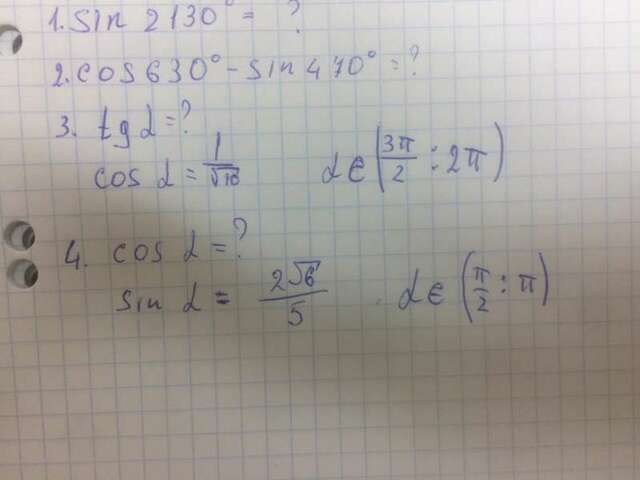 1. sin 2130° = ?
2. cos 630° - sin 470° = ?
3. tg α = ?
cos α = 1/√10 α ∈ (3π/2 : 2π)
4. cos α = ?
sin α = 2√6/5 α ∈ (π/2 : π)